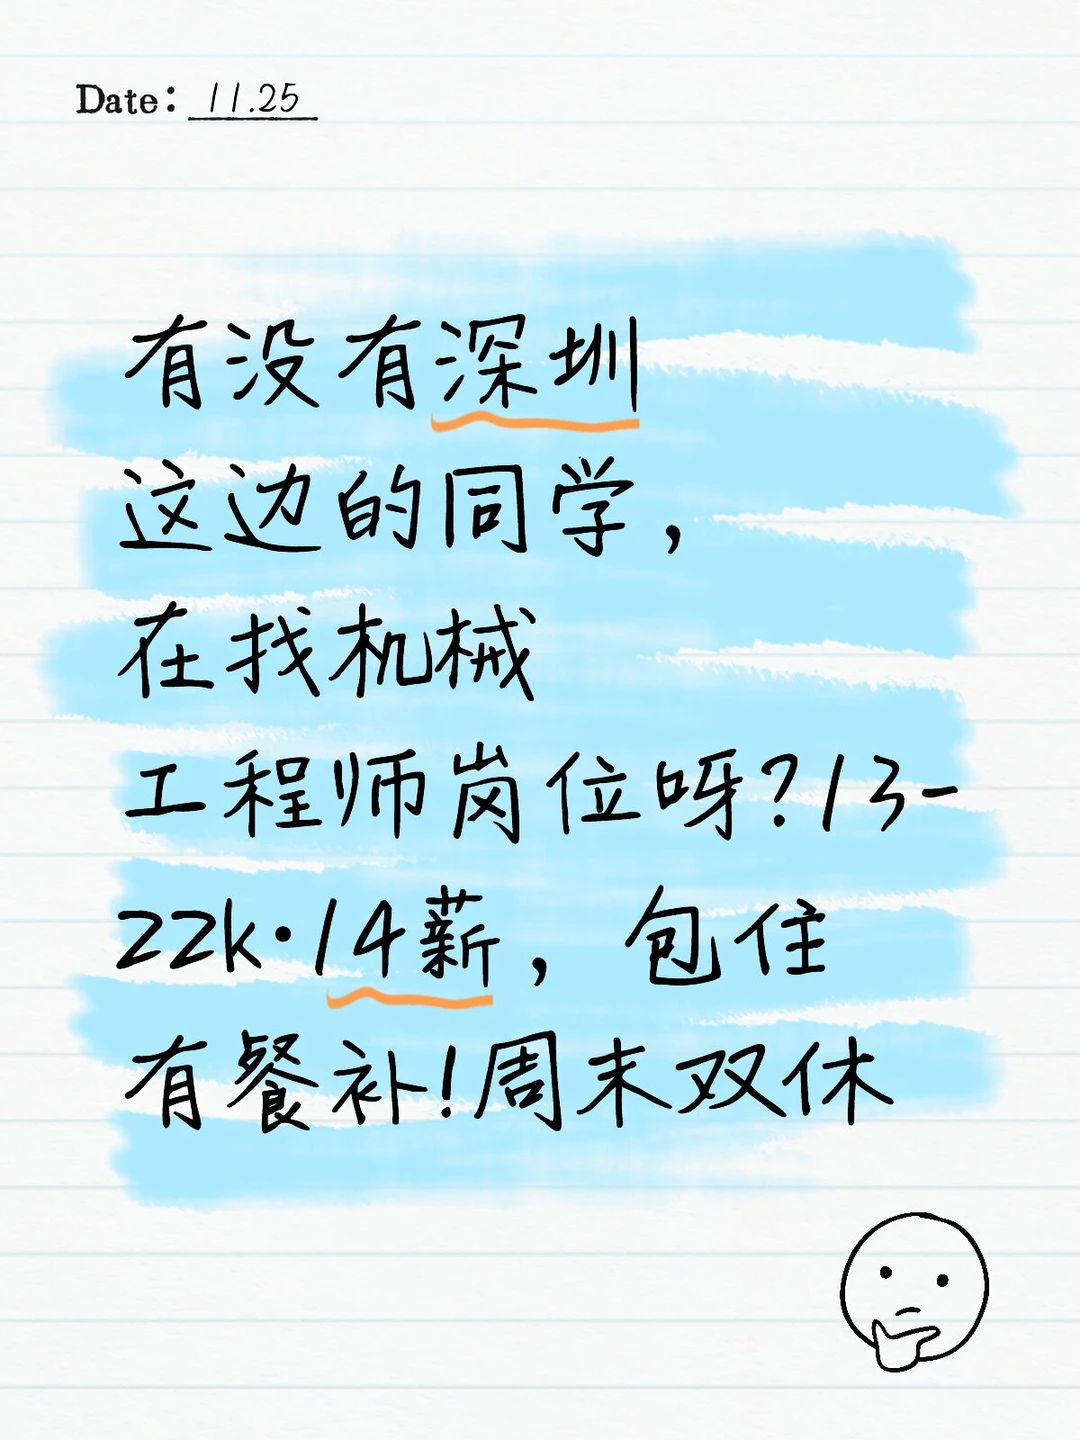 Date: 11.25
有没有深圳
这边的同学，
在找机械
工程师岗位呀?13-
22k·14薪，包住
有餐补!周末双休